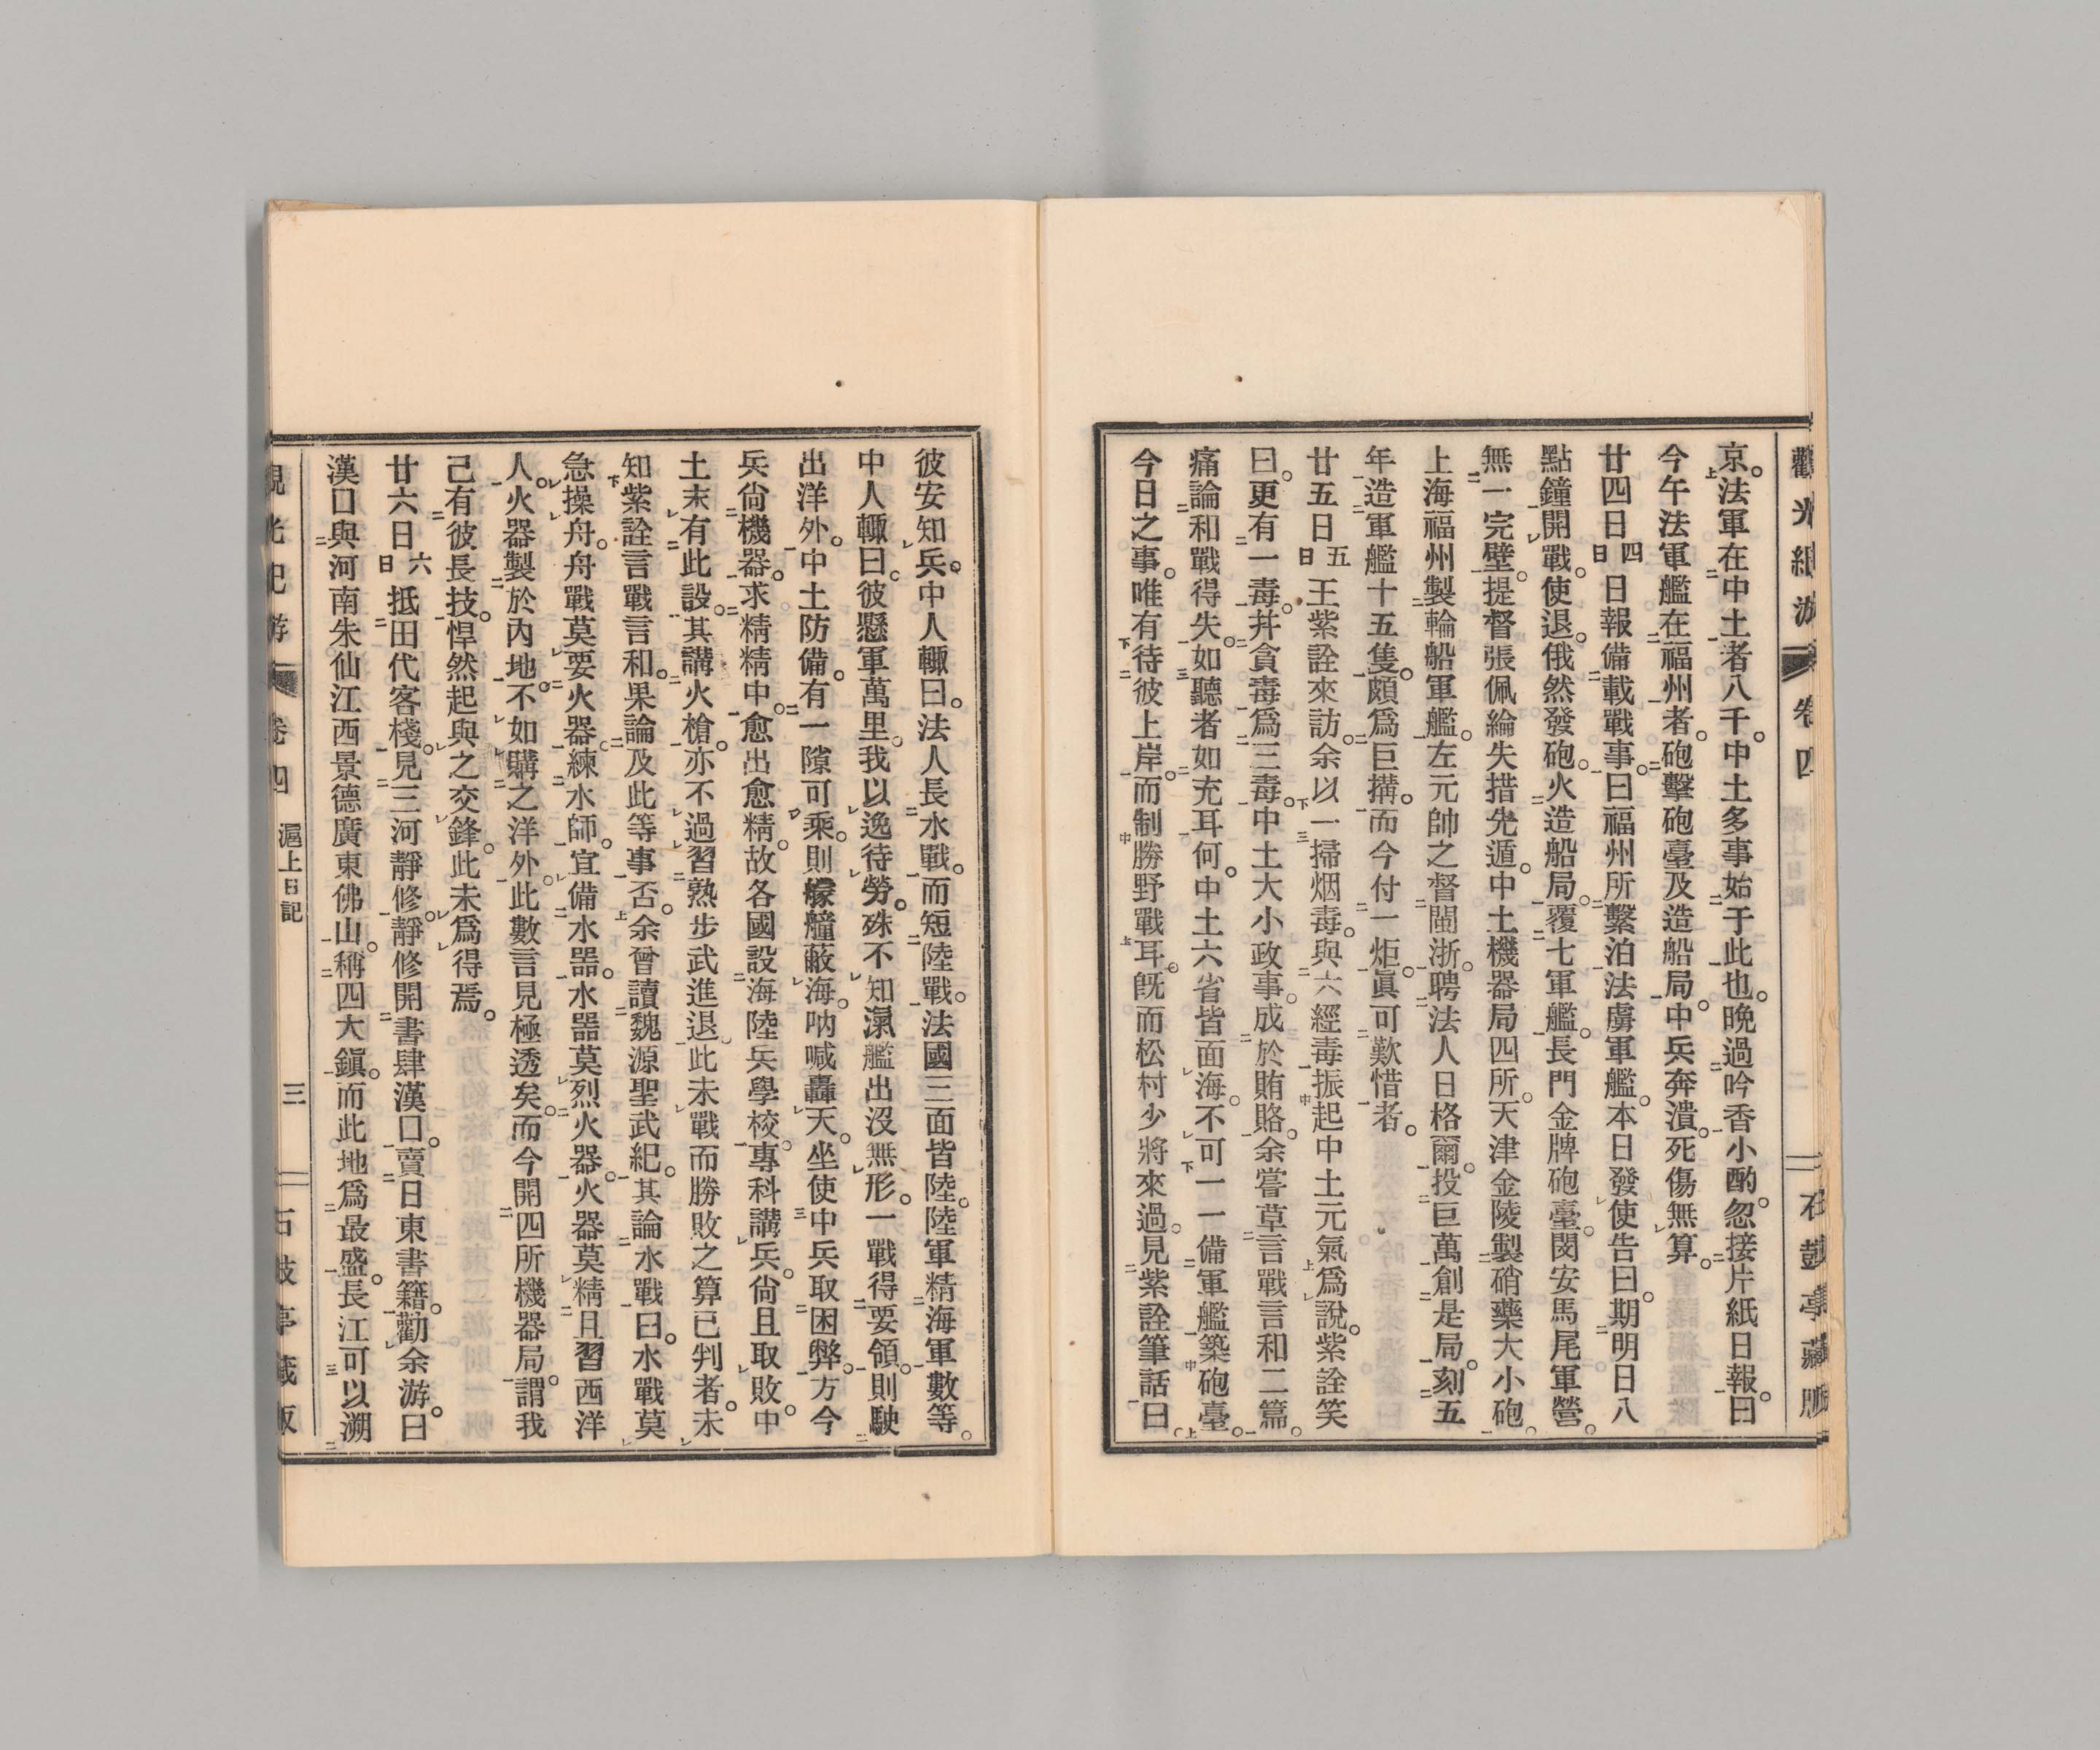 觀光紀游 卷四 石鼓亭藏版
京。法軍在中土者八千。中土多事始于此也。晩過吟香小酌。忽接片紙日報。曰
今午法軍艦在福州者。砲擊砲臺及造船局。中兵奔潰。死傷無算。
廿四日四日日報備載戰事。曰福州所繫泊法虜軍艦。本日發使告曰。期明日八
點鐘開戰。使退。俄然發砲。火造船局。覆七軍艦。長門金牌砲臺。閔安馬尾軍營。
無一完壁。提督張佩綸失措先遁。中土機器局四所。天津金陵製硝藥大小砲。
上海福州製輪船軍艦。左元帥之督閩浙。聘法人日格爾。投巨萬創是局。刻五
年造軍艦十五隻。頗爲巨搆。而今付一炬。眞可歎惜者。
廿五日五日王紫詮來訪。余以一掃烟毒。與六經毒振起中土元氣爲說。紫詮笑
曰。更有一毒。幷貪毒爲三毒。中土大小政事。成於賄賂。余嘗草言戰言和二篇。
痛論和戰得失。如聽者如充耳何。中土六省皆面海。不可一一備軍艦築砲臺。
今日之事。唯有待彼上岸。而制勝野戰耳。既而松村少將來過。見紫詮筆話曰。
彼安知兵。中人輙曰。法人長水戰。而短陸戰。法國三面皆陸。陸軍精海軍數等。
中人輙曰。彼懸軍萬里。我以逸待勞。殊不知滊艦出沒無形。一戰得要領。則駛
出洋外。中土防備。有一隙可乘。則艨艟蔽海。吶喊轟天。坐使中兵取困弊。方今
兵尙機器。求精精中。愈出愈精。故各國設海陸兵學校。專科講兵。尙且取敗。中
土未有此設。其講火槍。亦不過習熟步武進退。此未戰而勝敗之算已判者。未
知紫詮言戰言和。果論及此等事否。余曾讀魏源聖武紀。其論水戰曰。水戰莫
急操舟。舟戰莫要火器。練水師。宜備水噐。水噐莫烈火器。火器莫精且習西洋
人。火器製於內地。不如購之洋外。此數言見極透矣。而今開四所機器局。謂我
己有彼長技。悍然起與之交鋒。此未爲得焉。
廿六日六日抵田代客棧。見三河靜修。靜修開書肆漢口。賣日東書籍。勸余游。曰
漢口與河南朱仙江西景德廣東佛山。稱四大鎭。而此地爲最盛。長江可以溯
觀光紀游 卷四 滬上日記 三 石鼓亭藏版